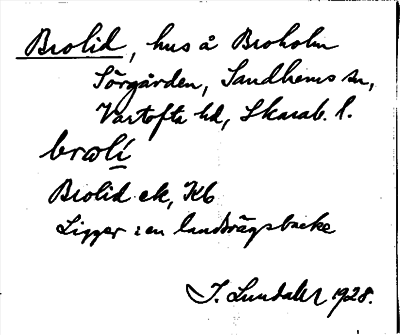 Brolid, hus å Broholm
Sörgården, Sandhems sn,
Vartofta hd, Skarab. l.
brωlí
Brolid ek, Kb
Ligger i en landsvägsbacke
J. Lundahl 1928.